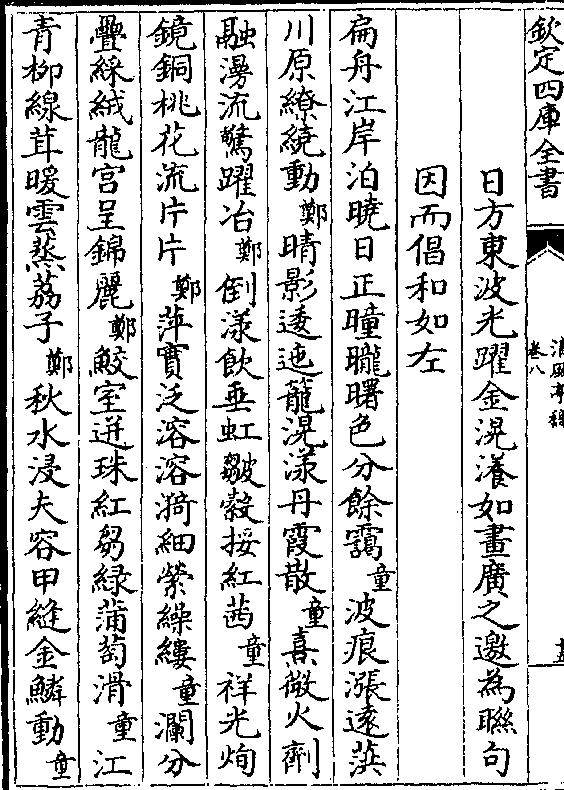 欽定四庫全書
清風亭稿
卷八
日方東波光躍金滉瀁如畫廣之邀為聯句
因而倡和如左
扁舟江岸泊曉日正曈曨曙色分餘靄童波痕漲遠蓂
川原繚繞動鄭晴影逶迤籠滉漾丹霞散童熹微火劑
融漫流驚躍冶鄭倒漾飲垂虹皺縠挼紅茜童祥光炯
鏡銅桃花流片片鄭萍實泛溶溶漪細縈繰縷童瀾分
疊綵絨龍宮呈錦麗鄭鮫室迸珠紅芻緑蒲萄滑童江
青柳線茸暖雲蒸荔子鄭秋水浸夫容甲縫金鱗動童